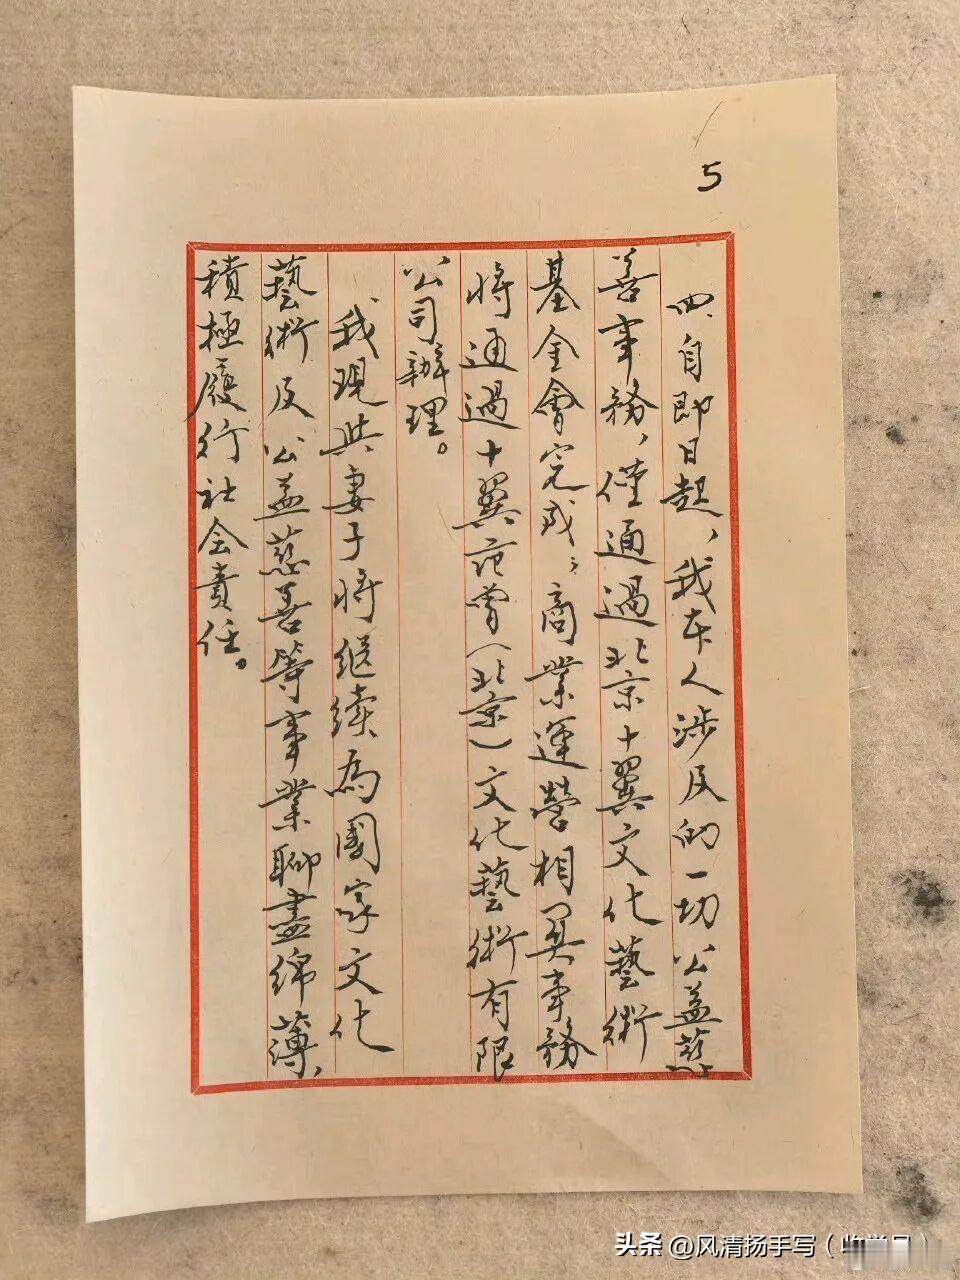 5
四、自即日起，我本人涉及的一切公益慈
善事務，僅通過北京十翼文化藝術
基金會完成；商業運營相関事務
将通過十翼范曾（北京）文化藝術有限
公司辦理。
我現与妻子将继续為國家文化
藝術及公益慈善等事業聊盡綿薄，
積極履行社会責任。
头条 @风清扬手写